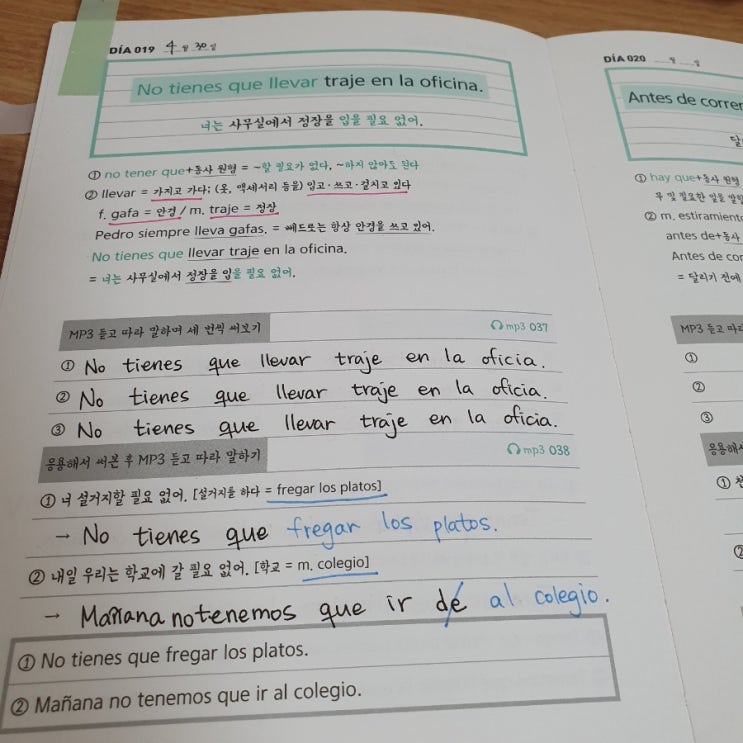 DÍA 019 4월 30일
No tienes que llevar traje en la oficina.
너는 사무실에서 정장을 입을 필요 없어.
① no tener que+동사 원형 = ~할 필요가 없다, ~하지 않아도 된다
② llevar = 가지고 가다; (옷, 액세서리 등을) 입고·쓰고·걸치고 있다
f. gafa = 안경 / m. traje = 정장
Pedro siempre lleva gafas. = 뻬드로는 항상 안경을 쓰고 있어.
No tienes que llevar traje en la oficina.
= 너는 사무실에서 정장을 입을 필요 없어.
MP3 듣고 따라 말하며 세 번씩 써보기
mp3 037
① No tienes que llevar traje en la oficia.
② No tienes que llevar traje en la oficia.
③ No tienes que llevar traje en la oficia.
응용해서 써본 후 MP3 듣고 따라 말하기
mp3 038
① 너 설거지할 필요 없어. [설거지를 하다 = fregar los platos]
→ No tienes que fregar los platos.
② 내일 우리는 학교에 갈 필요 없어. [학교 = m. colegio]
→ Mañana no tenemos que ir de al colegio.
① No tienes que fregar los platos.
② Mañana no tenemos que ir al colegio.
DÍA 020 월 일
Antes de correr
① hay que+동사 원형
② m. estiramiento
antes de+동사
Antes de cor
= 달리기 전에
MP3 듣고 따라
①
②
③
응용해서
①
②